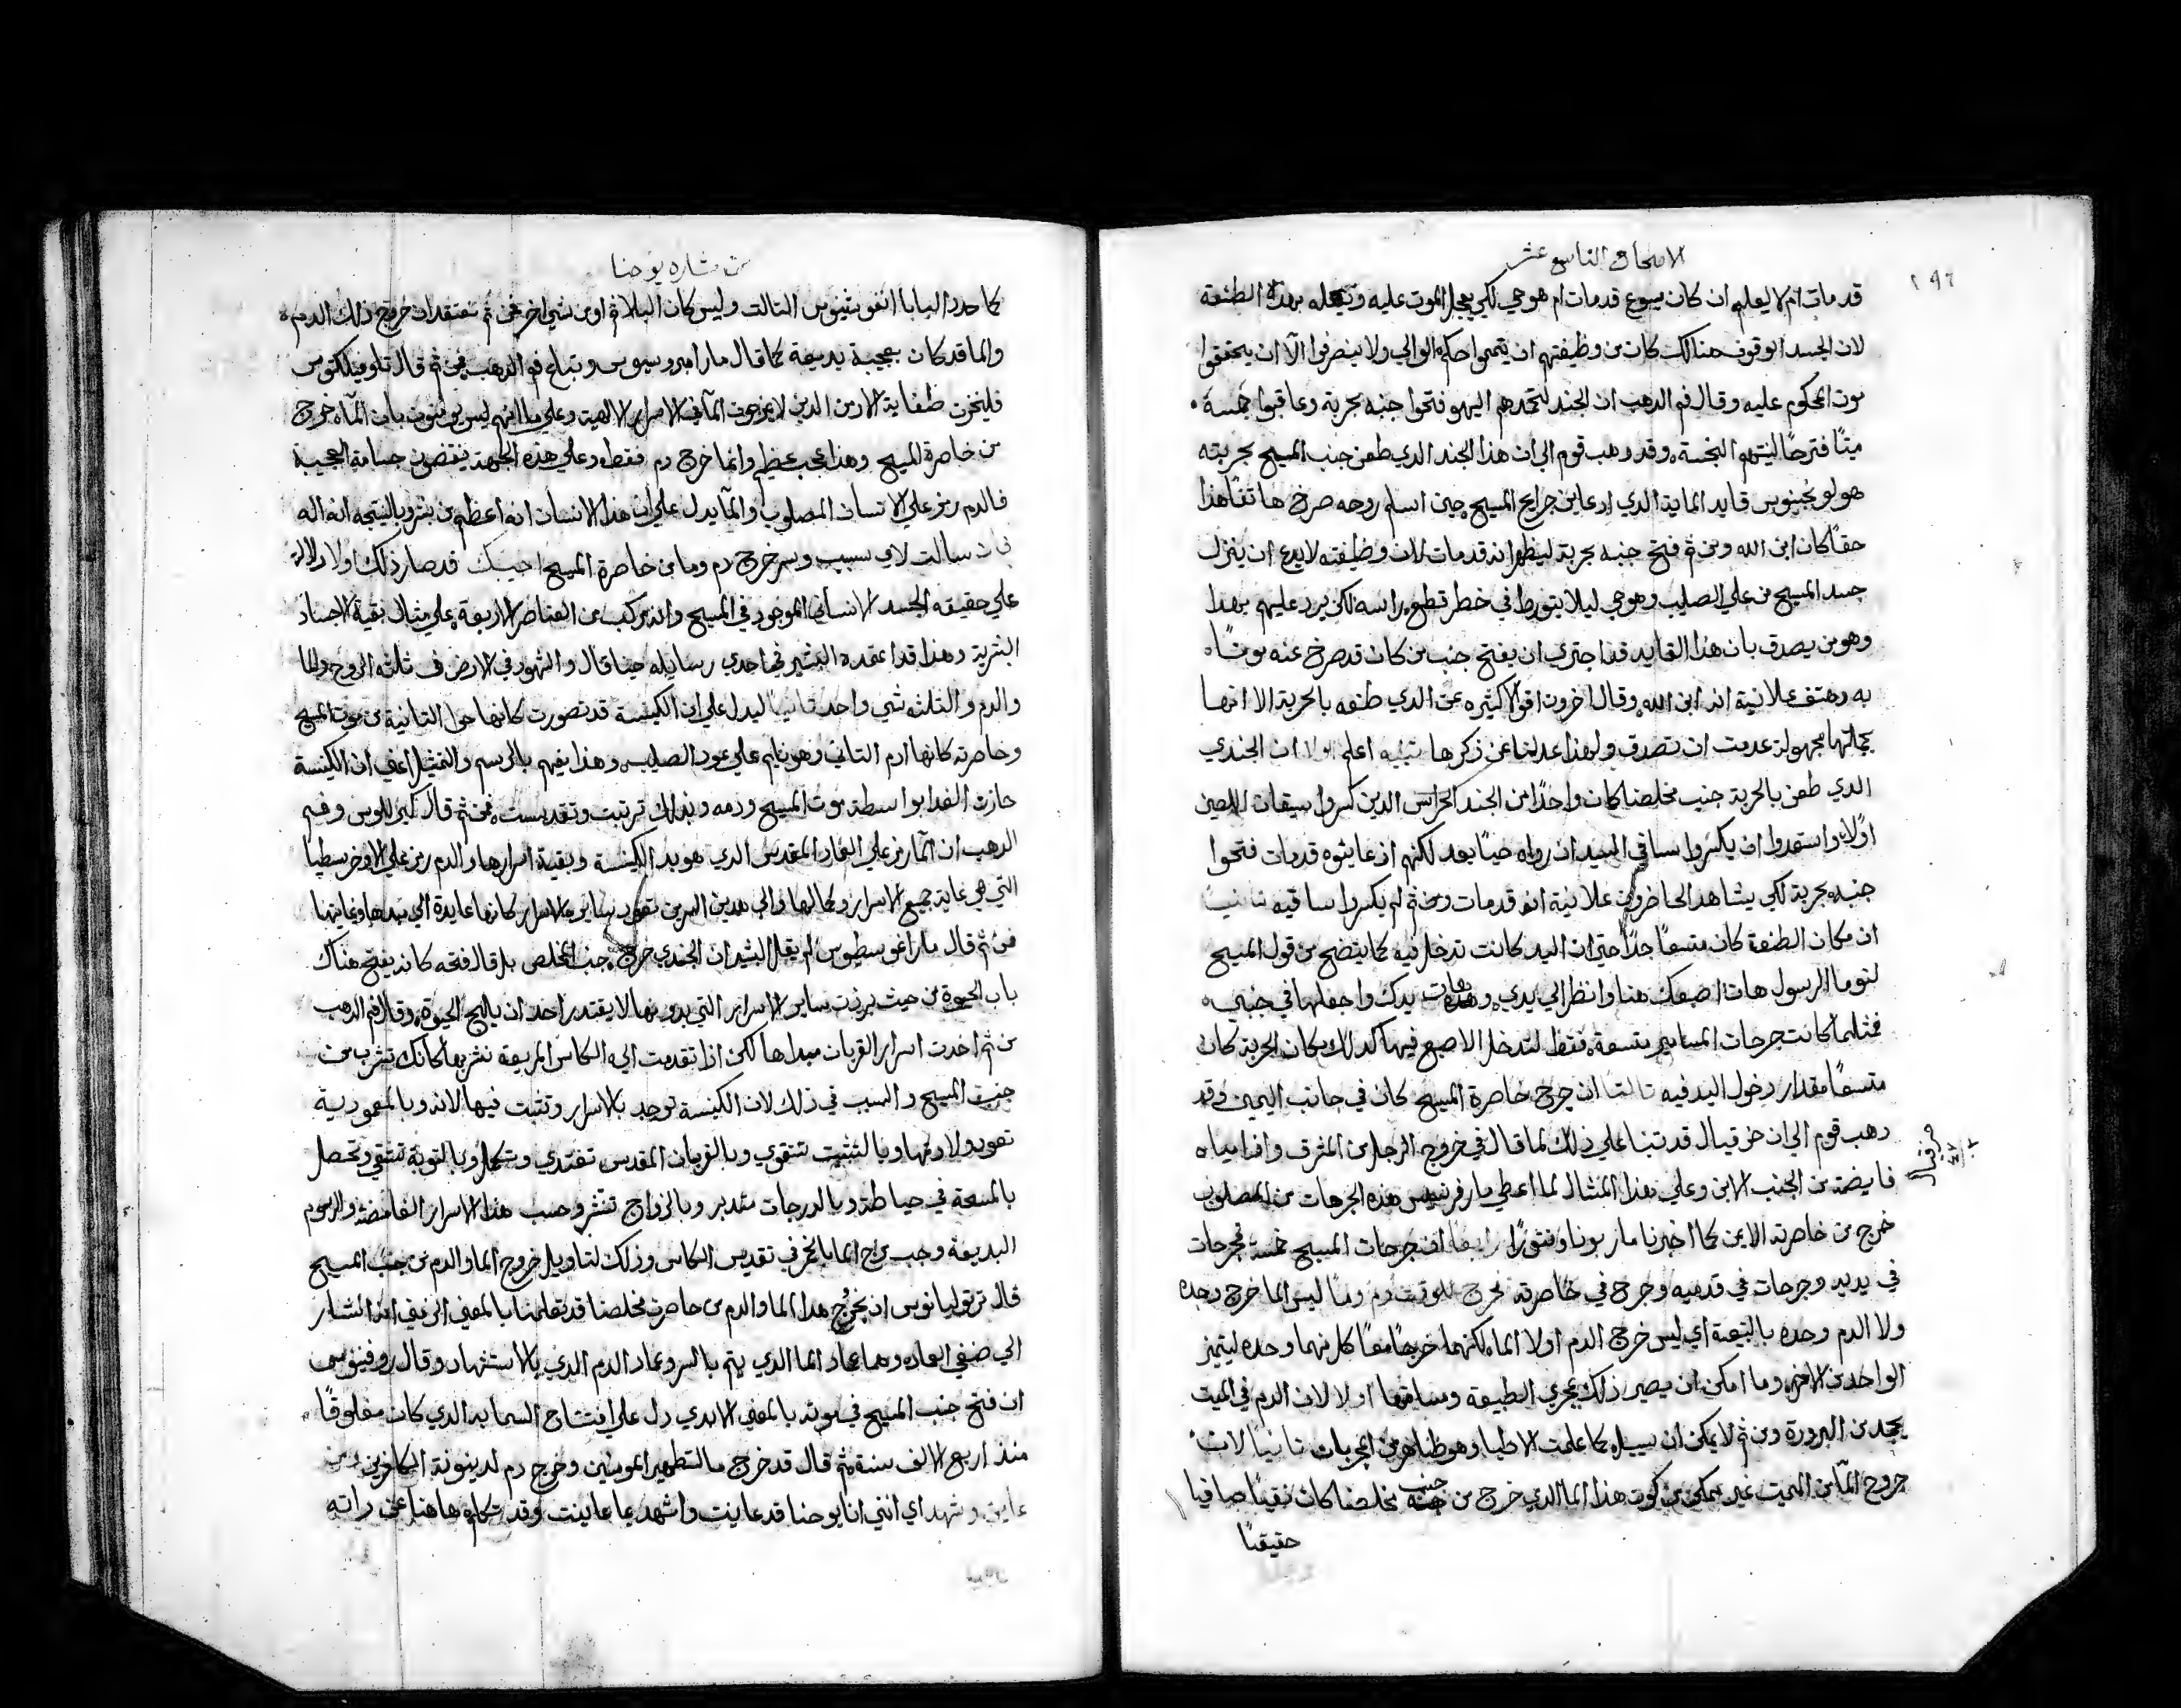 الاصحاح التاسع عشر
١٩٦
قد مات ام لا يعلم ان كان يسوع قد مات ام هو حي لكي يعجل الموت عليه ويقتله بهذه الطعنة
لان الجسد الوقوف هنالك كان من وظيفتهم ان يتمموا حكم الوالي ولا ينصرفوا الآ ان يحققوا
موت المحكوم عليه وقال فم الدهب ان الجند لتحمدهم اليهود فتحوا جنبه بحربة وعاقبوا جسمه
ميتًا فترحًا لنيتهم النجسة، وقد دهب قوم الي ان هذا الجند الدي طعن جنب المسيح بحربته
هو لونجينوس قايد الماية الدي اد عاين جرايح المسيح حين اسلم روحه صرخ هاتفًا هذا
حقًا كان ابن الله ومن ثم فتح جنبه بحربة ليظهر انه قد مات لان وظيفته لا يدع ان ينزل
جسد المسيح من علي الصليب وهو حي ليلا يتورط في خطر قطع راسه لكن يرد عليهم بهذا
وهو من يصدق بان هذا القايد قد اجتري ان يفتح جنب من كان قد صرخ عنه مومنًا
به وهتف علانية انه ابن الله، وقال اخرون اقوالا كثيره عن الدي طعنه بالحربة الا انها
بجملتها مجهولة عدمت ان تصدق ولهذا عدلنا عن ذكرها تنبيه اعلم اولا ان الجندي
الدي طعن بالحربة جنب مخلصنا كان واحدًا من الجند الحراس الدين كسروا سيقان اللصين
اولا، واستعدوا ان يكسروا ساقي السيد ان رواه حيًا بعد لكنهم اذ عاينوه قد مات فتحوا
جنبه بحربة لكي يشاهد الحاضرون علانية انه قد مات ومن ثم لم يكسروا ساقيه ثانيًا
ان مكان الطعنة كان متسعًا جدًا حتي ان اليد كانت تدخل فيه كما يتضح من قول المسيح
لتوما الرسول هات اصبعك هنا وانظر الي يدي، وهات يدك واجعلها في جنبي
فمثلما كانت جرحات المسامير متسعة فقط لتدخل الاصبع فيها كدلك مكان الحربة كان
متسعًا مقدار دخول اليد فيه ثالثًا ان جرح خاصرة المسيح كان في جانب اليمين وقد
دهب قوم الي ان حزقيال قد تنبا علي ذلك لما قال في خروج الرجل من المشرق وادا مياه
حزقيال
فايضة من الجنب الايمن وعلي هذا المثال لما اعطي مار فرنسيس هذه الجرحات من المصلوب
خرج من خاصرته الايمن كما اخبرنا مار بوناونتورًا رابعًا ان جرحات المسيح خمسة فجرحات
في يديه وجرحات في قدميه وجرح في خاصرته فخرج للوقت دم ومًا ليس الما خرج وحده
ولا الدم وحده بالتبعة اي ليس خرج الدم اولا الما، لكنهما خرجا معًا كل منهما وحده ليتميز
الواحد من الاخر، وما امكن ان يصير ذلك بمجري الطبيعة ومساقها اولا لان الدم في الميت
يجمد من البرودة ومن ثم لا يمكن ان يسيل كما علمت الاطبا وهو ظاهر من المجربات ثانيًا لان
خروج المآ من الميت غير ممكن من كون هذا الما الدي خرج من جنب مخلصنا كان نقيًا صافيا
حقيقيًا
من بشاره يوحنا
كما حدد البابا اينوشنسيوس الثالث وليس كان البلاثم او من شي اخر فمن ثم نعتقد ان خروج ذلك الدم
والما قد كان بعجيبة بديعة كما قال مار امبروسيوس وتبعه فم الدهب فمن ثم قال تاوفيلكتوس
فليخزن طغاية الارمن الدين لا يمزجون المآ في الاسرار الالهية وعلي ما انهم ليس يومنون بان المآ خرج
من خاصرة المسيح وهذا عجب عظيم وانما خرج دم فقط، وعلي هذه الجهة ينقصون جسامة العجيبة
فالدم رمز علي الانسان المصلوب والمآ يدل علي ان هذا الانسان انه اعظم من بشر وبالنتيجه انه اله
فان سالت لاي سبب وسر خرج دم وما من خاصرة المسيح اجيبك قد صار ذلك اولا دلالة
علي حقيقه الجسد الانساني الموجود في المسيح وانه مركب من العناصر الاربعة علي مثال بقية الاجساد
البشرية وهذا قد اعتمده البشير في احدي رسايله حينا قال والشهود في الارض ثلثه الروح والما
والدم والثلثه شي واحد ثانيا ليدل علي ان الكنيسة قد تصورت كانها حوا الثانية من موت المسيح
وخاصرته كانها ادم الثاني وهو نايم علي عود الصليب، وهذا يفهم بالرسم والتمثيل اعني ان الكنيسة
حازت الفدا بواسطة موت المسيح ودمه وبذلك ترتبت وتقدست، فمن ثم قال كيرللوس وفم
الدهب ان المآ رمز علي العماد المقدس الدي هو بدء الكنيسة وبقية اسرارها، والدم رمز علي الاوخرسطيا
التي هي غاية جميع الاسرار وكمالها، والي هدين السرين تعود ساير الاسرار كانها عايدة الي مبداها وغايتها
فمن ثم قال مار اغوسطيوس لم يقل البشير ان الجندي جرح جنب المخلص بل قال فتحه كانه يفتح هناك
باب الحيوة من حيث برزت ساير الاسرار التي بدونها لا يقتدر احد ان يلج الحيوة، وقال فم الدهب
من ثم اخدت اسرار القربان مبداها لكن اذا تقدمت الي الكاس المريعة نشربها كانك تشرب من
جنب المسيح والسبب في ذلك لان الكنيسة توجد بالاسرار وتثبت فيها لانه وبالمعمودية
تعود ولادتها وبالتثبيت تتقوي وبالقربان المقدس تغتدي وتكمل وبالتوبة تنتقي وتحصل
بالمسحة في حياطة وبالدرجات متدبر وبالزواج تنتشر وحسب هذا الاسرار الغامضة والرسوم
البديعة وجب مزج الما بالخمر في تقديس الكاس وذلك لتاويل خروج الما والدم من جنب المسيح
قال ترتوليانوس ان بخروج هذا الما والدم من خاصرة مخلصنا قد تعلمنا بالمعني الرمزي انه اشار
الي صنفي العماد، وهما عماد الما الدي يتم بالسر وعماد الدم الدي بالاستشهاد وقال روفينوس
ان فتح جنب المسيح في موته بالمعني الابدي دل علي افتتاح السما بعد الدي كان مغلوقًا
منذ اربع الالف سنة، ثم قال قد خرج ما لتطهير المومنين وخرج دم لدينونة الكافرين ومن
عاين وشهد اي انني انا يوحنا قد عاينت واشهد بما عاينت وقد تكلم هاهنا عن راته